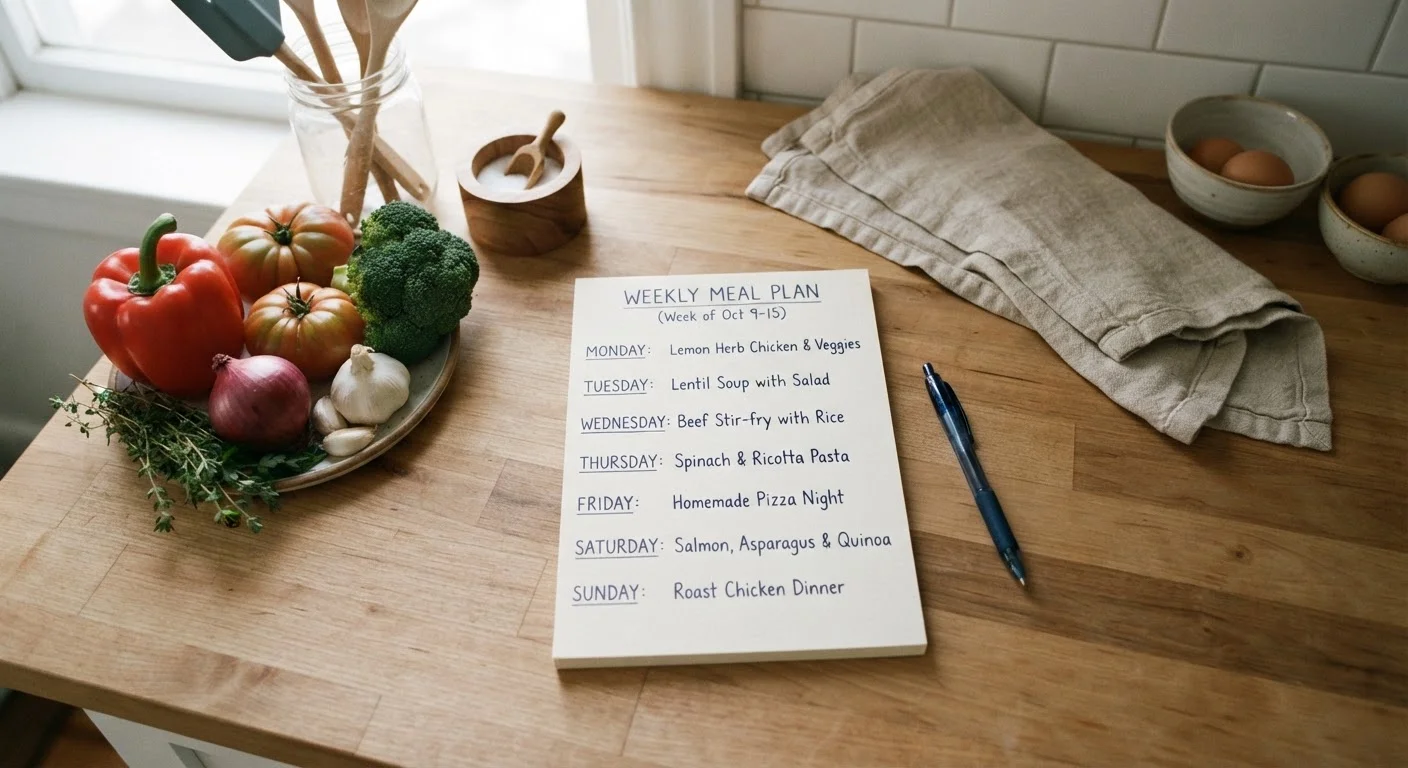 WEEKLY MEAL PLAN
(Week of Oct 9-15)
MONDAY: Lemon Herb Chicken & Veggies
TUESDAY: Lentil Soup with Salad
WEDNESDAY: Beef Stir-fry with Rice
THURSDAY: Spinach & Ricotta Pasta
FRIDAY: Homemade Pizza Night
SATURDAY: Salmon, Asparagus & Quinoa
SUNDAY: Roast Chicken Dinner